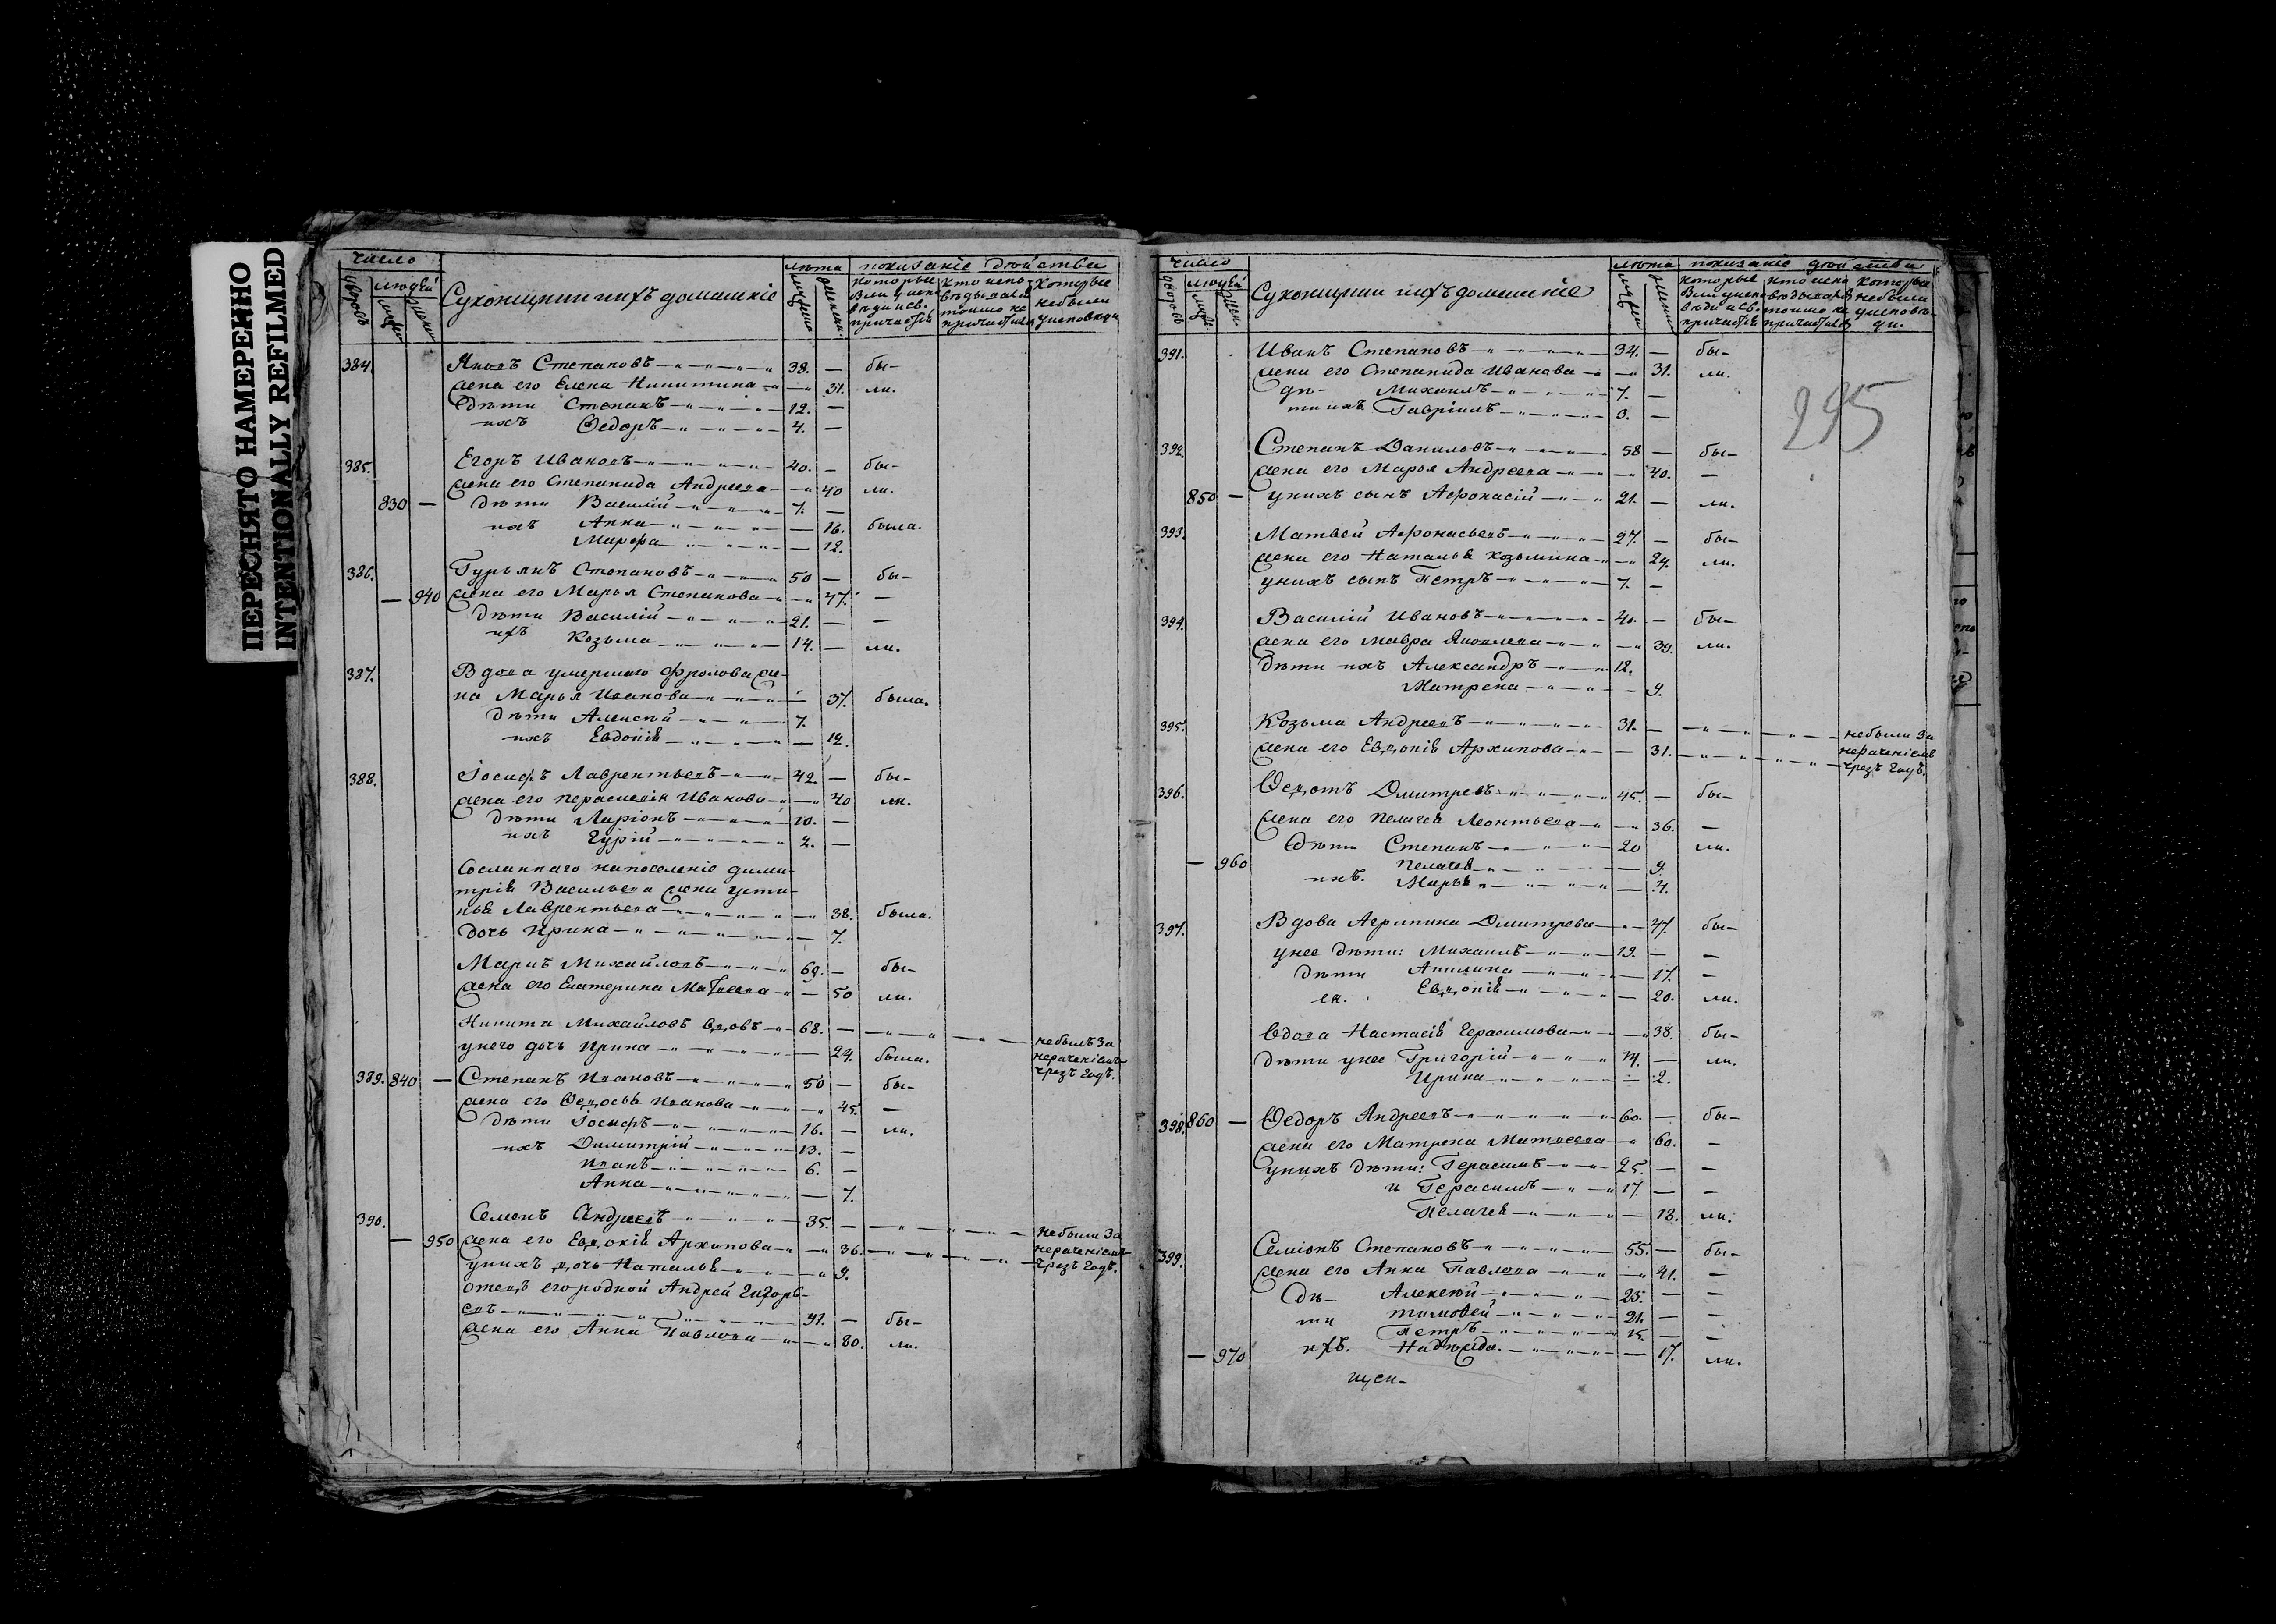 ПЕРЕСНЯТО НАМЕРЕННО
INTENTIONALLY REFILMED
число
людей
лѣта
показаніе дѣйства
384. Яковъ Степановъ 38. — бы-
жена его Елена Никитина 31. ли.
дѣти Степанъ 12. —
ихъ Ѳедоръ 4. —
385. Егоръ Ивановъ 40. — бы-
жена его Степанида Андреева 40 ли.
830 — дѣти Василій 7. —
ихъ Анна — 16. была.
Марѳа — 12.
386. Гурьянъ Степановъ 50 — бы-
— 940 жена его Марья Степанова 47. —
дѣти Василій 21. — —
ихъ Козьма 14. — ли.
387. Вдова умершаго Фролова же-
на Марья Иванова 37. была.
дѣти Алексѣй 7.
ихъ Евдокія — 12.
388. Іосифъ Лаврентьевъ 42. — бы-
жена его Парасковія Иванова 40 ли.
дѣти Ларіонъ 10. —
ихъ Гурій 2. —
Сосланнаго напоселеніе дими-
трія Васильева жена усти-
нья Лаврентьева 38. была.
дочь Ирина — 7.
Маркъ Михайловъ 69. — бы-
жена его Екатерина Матвеева — 50 ли.
Никита Михайловъ вдовъ 68. — небылъ за
унего дочь Ирина — 24. была. нераченіемъ
чрезъ годъ.
389. 840 — Степанъ Ивановъ 50 — бы-
жена его Ѳедосья Иванова 45. —
дѣти Іосифъ 16. — ли.
ихъ Димитрій 13. —
Иванъ 6. —
Анна — 7.
390. Семенъ Андреевъ 35. — небыли за
— 950 жена его Евдокія Архипова 36. нераченіемъ
унихъ дочь Наталья 9. чрезъ годъ.
отецъ его родной Андрей
евъ 91. — бы-
жена его Анна Павлова 80. ли.
число
людей
лѣта
показаніе дѣйства
295
391. Иванъ Степановъ 34. — бы-
жена его Степанида Иванова 31. ли.
дѣ- Михаилъ 7. —
ти ихъ Гавріилъ 0. —
392. Степанъ Даниловъ 58 — бы-
жена его Марья Андреева 40. —
850 — унихъ сынъ Афонасій 21. — ли.
393. Матвей Афонасьевъ 27. — бы-
жена его Наталья Козьмина 24. ли.
унихъ сынъ Петръ 7. —
394. Василій Ивановъ 40. — бы-
жена его Мавра Яковлева 39. ли.
дѣти ихъ Александръ 12.
Матрена — 9.
395. Козьма Андреевъ 31. — небыли за
жена его Евдокія Архипова — 31. нераченіемъ
чрезъ годъ.
396. Ѳедотъ Димитревъ 45. — бы-
жена его Пелагея Леонтьева 36. —
дѣти Степанъ 20 ли.
— 960 Пелагея — 9.
ихъ. Марья — 4.
397. Вдова Агрипина Димитрева — 47. бы-
унее дѣти: Михаилъ 19. — —
дѣти Акилина — 17. —
ея. Евдокія — 20. ли.
вдова Настасія Герасимова 38. бы-
дѣти унее Григорій 14. — ли.
Ирина — 2.
398. 860 — Ѳедоръ Андреевъ 60. — бы-
жена его Матрена Матвеева 60. —
унихъ дѣти: Герасимъ 25. — —
и Герасимъ 17. — —
Пелагея — 18. ли.
399. Семіонъ Степановъ 55. — бы-
жена его Анна Павлова 41. —
дѣ- Алексѣй 25. — —
ти тимоѳей 21. — —
Петръ 15. — —
— 970 ихъ. Надѣжда. — 17. ли.